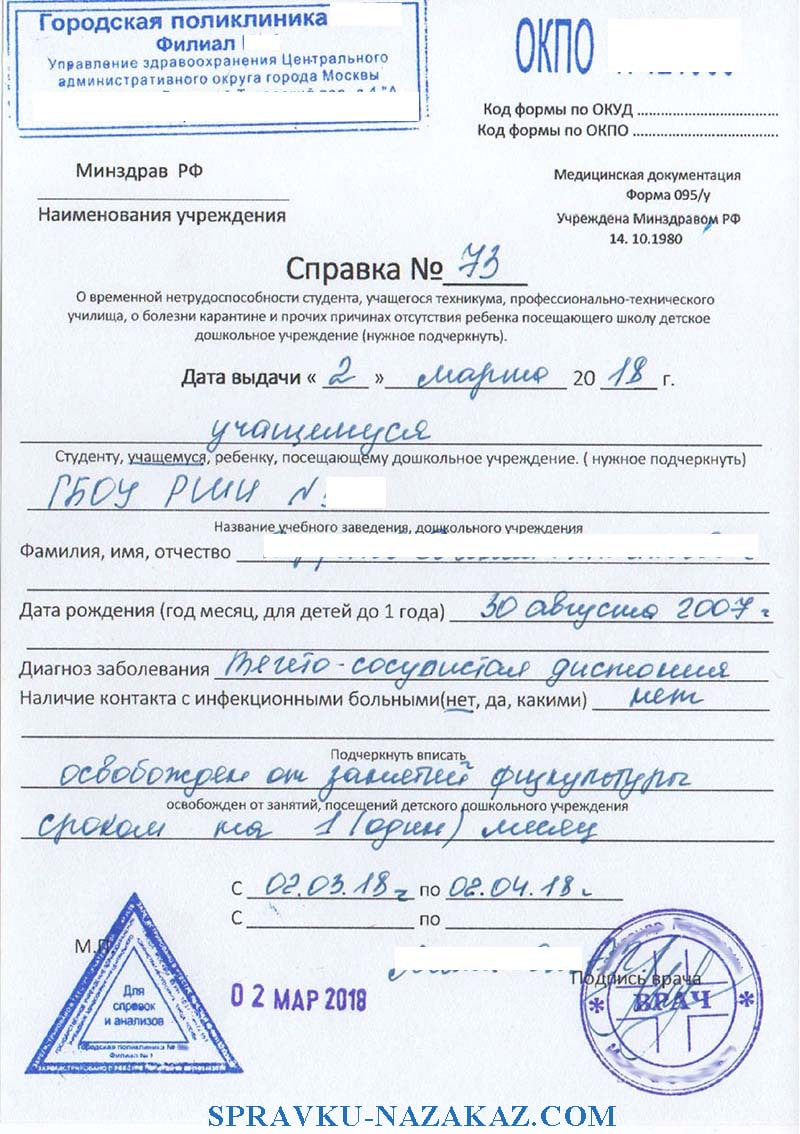 Городская поликлиника
Филиал
Управление здравоохранения Центрального
административного округа города Москвы
ОКПО
Код формы по ОКУД
Код формы по ОКПО
Минздрав РФ
Наименования учреждения
Медицинская документация
Форма 095/у
Учреждена Минздравом РФ
14. 10.1980
Справка № 73
О временной нетрудоспособности студента, учащегося техникума, профессионально-технического
училища, о болезни карантине и прочих причинах отсутствия ребенка посещающего школу детское
дошкольное учреждение (нужное подчеркнуть).
Дата выдачи « 2 » марта 20 18 г.
учащемуся
Студенту, учащемуся, ребенку, посещающему дошкольное учреждение. ( нужное подчеркнуть)
ГБОУ РШИ №
Название учебного заведения, дошкольного учреждения
Фамилия, имя, отчество
Дата рождения (год месяц, для детей до 1 года) 30 августа 2007 г
Диагноз заболевания Вегето-сосудистая дистония
Наличие контакта с инфекционными больными(нет, да, какими) нет
Подчеркнуть вписать
освобожден от занятий физкультуры
освобожден от занятий, посещений детского дошкольного учреждения
сроком на 1 (один) месяц
С 02.03.18 г по 02.04.18 г.
С по
М.П
Подпись врача
Для
справок
и анализов
Городская поликлиника №
Филиал № 1
02 МАР 2018
* ВРАЧ *
SPRAVKU-NAZAKAZ.COM